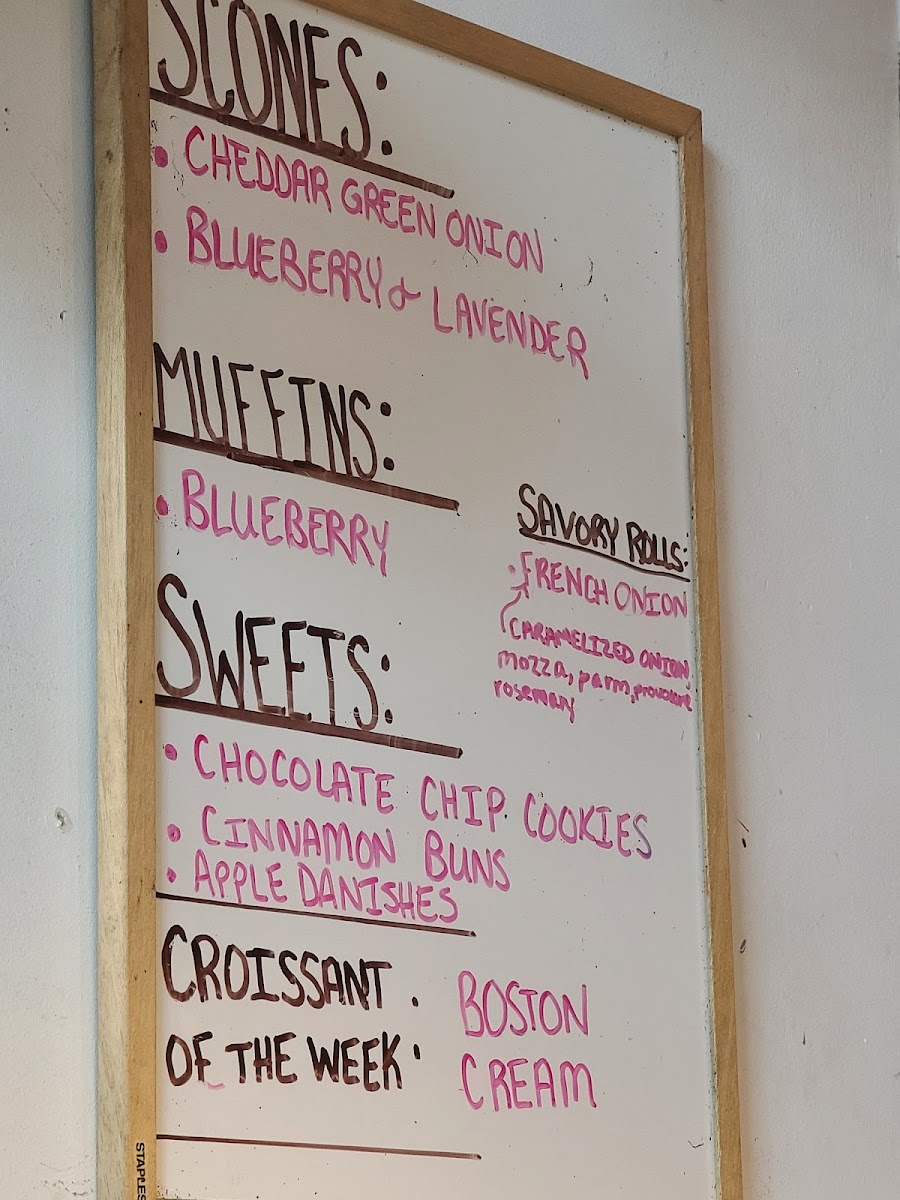 SCONES:
• CHEDDAR GREEN ONION
• BLUEBERRY & LAVENDER
MUFFINS:
• BLUEBERRY
SAVORY ROLLS:
• FRENCH ONION
CARAMELIZED ONION,
mozza, parm, provolone
rosemary
SWEETS:
• CHOCOLATE CHIP COOKIES
• CINNAMON BUNS
• APPLE DANISHES
CROISSANT
OF THE WEEK:
BOSTON
CREAM
STAPLES